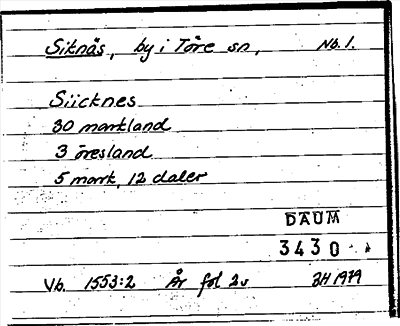 Siknäs, by i Töre sn, Nb. 1.
Siicknes
30 markland
3 öresland
5 mark, 12 daler
DAUM
3430
Vb. 1553:2 År fol 2v BH 1979